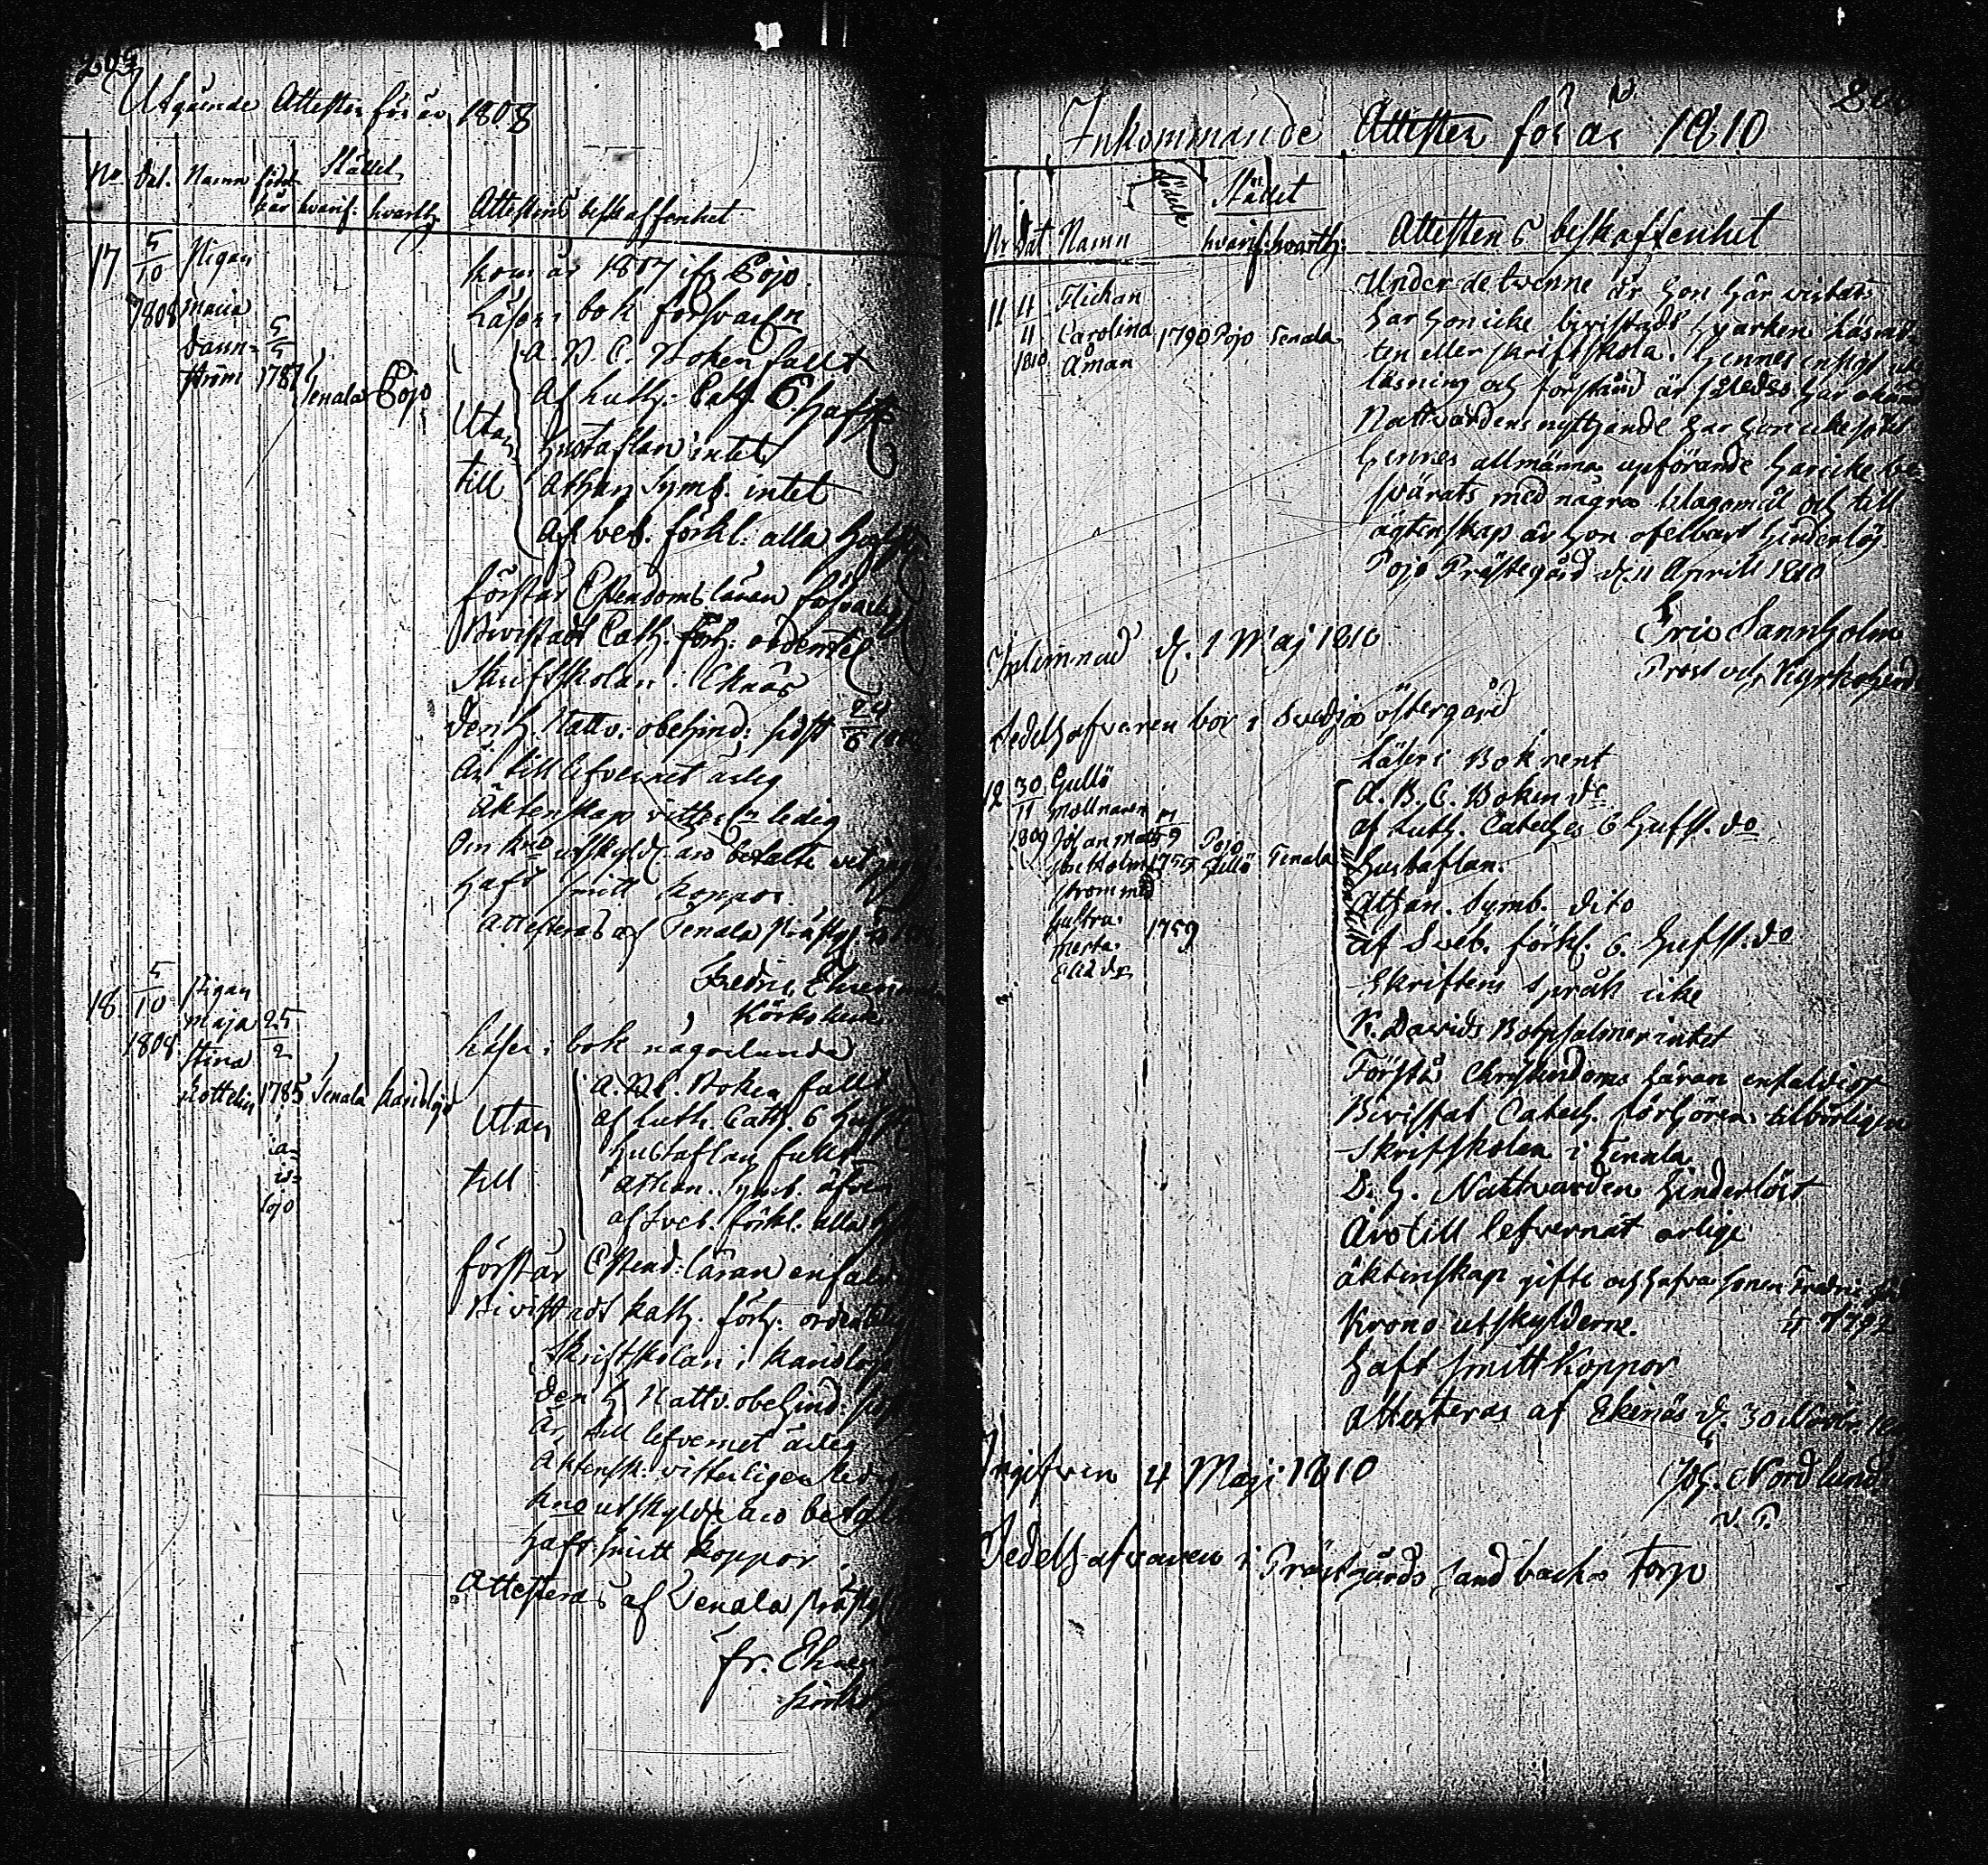 Utgående Attester för år 1808
No Dat. Namn född Stället
hvarif: hvarth Attestens beskaffenhet
17 5/10 1808
Pigan
Maria
Dann=
ström
5/5 1787
Tenala Pojo
kom år 1807 ifr Pojo
Läser i bok försvarl
Utan
till
A.B.C. Boken fullt
Af Luth. Cat. 6 Hufst
Hustaflan intet
Athan Symb. intet
Af Sveb. förkl: alla Hufst
förstår Christendoms läran försvarlig
Bivistadt Cath. Förh: ordentel
Skriftskolan i Eknäs
Den H Nattv. obehind: sidst 24/6
Är till lefvernet ärlig
Äktenskap ledig
Den kno utskyld. äro betalte
Haft Smitt koppor
Attesteras af Tenala Prästg
Fredric Ehren
Körkoherde
18. 5/10 1808
Pigan
Maja
Stina
Kottelin
25/2 1785
Tenala Karislojo
Läser i bok någorlunda
Utan
till
A.B.C. Boken fullt
af Luth. Cath. 6 Hufst
Hustaflan fullt
Athan. Symb. äfven
af Sveb. förkl. alla H
förstår Christend: läran enfald
Bivistadt Kath. förh: ordentelig
Skriftskolan i Karislojo
Den H Nattv. obehind:
Är till lefvernet ärlig
Äktensk: vitterligen led
kno utskyld. äro betalte
Haft Smitt koppor
Attesteras af Tenala Prästg
Fr. Ehren
Körkoh
Inkommande Attester för år 1810
Stället
Nr Dat Namn födde hvarif: hvarth: Attestens beskaffenhet
11 4 1810
Flickan
Carolina
Åman
1790 Pojo Tenala
Under de tvenne år hon här vistats
har hon icke bivistadt hvarken Läsmö
ten eller Skriftskola. Hennes insigt uti
läsning och förstånd är således här okänd
Nattvardens nyttjande har hon icke sökt
Hennes allmänna upförande har icke be
svärats med några klagomål och till
ägtenskap är hon ofelbart hinderlös
Pojo Prästegård d. 11 Aprill 1810
Eric Sannholm
Prost och Kyrkoherd
Inlemnad d. 1 Maj 1810
Sedelhafvaren bor i Svedja östergård
12 30/11 1809
Gullö
Möllnaren
Johan Matts
Son Holm
ström med
hustru
Merta
1755
1759
Pojo
Gullö
Tenala
Läser i Bok rent
utantill
A.B.C. Boken do
af Luth. Cateches 6 Hufst. do
Hustaflan.
Athan. Symb. dito
af Sveb. förkl. 6. Hufst. do
Skriftens Språk icke
K. Davids Botpsalmer intet
Förstå Christendoms läran enfaldigt
Bivistat Catech. förhören tilbörligen
Skriftskolan i Tenala
D. H. Nattvarden hinderlöst
Äro till lefvernät ärlige
äktenskap gifte och hafva Sonen Fredric
Krono utskylderne. 1792
Haft Smitt Koppor
Attesteras af Ekenäs d. 30 Novbr.
Joh. Nordlund
v. P.
Ingifven 4 Maji 1810
Sedelhafvaren i Prästgårds Sandbacka Torp